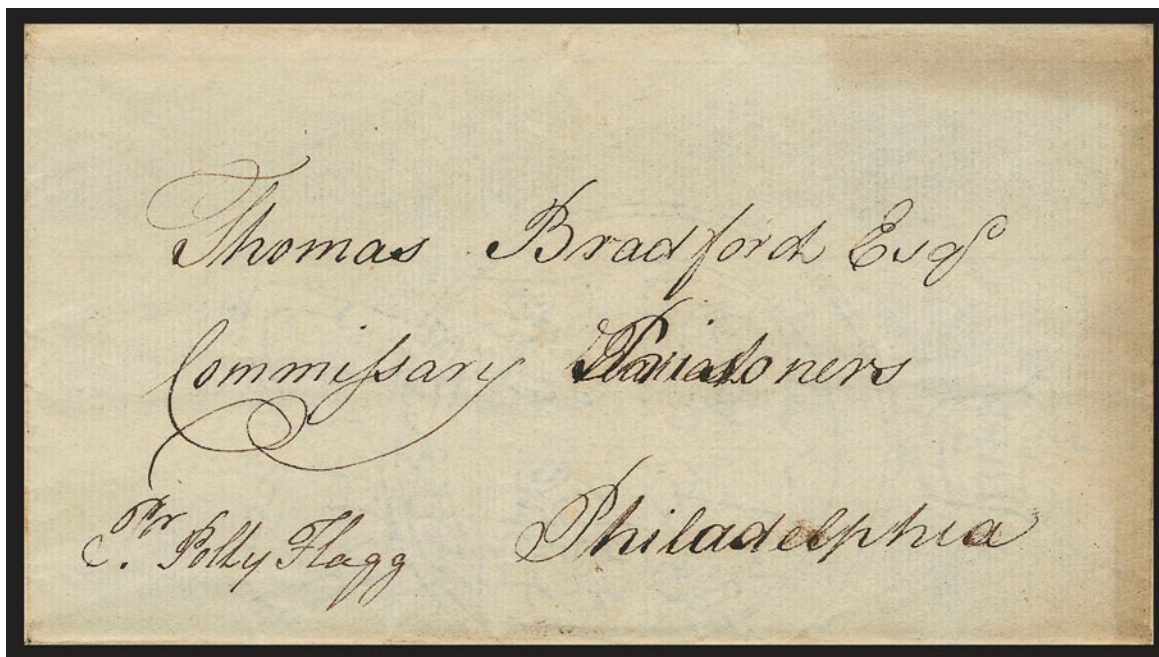 Thomas Bradford Esqr
Commiſsary Prisoners
Philadelphia
Pr Polly Flagg